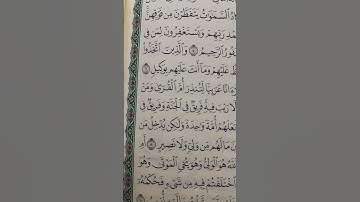 ٱلسَّمَٰوَٰتُ يَتَفَطَّرْنَ مِن فَوْقِهِنَّ
رَبِّهِمْ وَيَسْتَغْفِرُونَ لِمَن فِي
ٱلرَّحِيمُ ٥ وَٱلَّذِينَ ٱتَّخَذُوا
عَلَيْهِمْ وَمَآ أَنتَ عَلَيْهِم بِوَكِيلٍ ٦
عَرَبِيًّا لِّتُنذِرَ أُمَّ ٱلْقُرَىٰ وَمَنْ
لَا رَيْبَ فِيهِ فَرِيقٌ فِي ٱلْجَنَّةِ وَفَرِيقٌ فِي
أُمَّةً وَٰحِدَةً وَلَٰكِن يُدْخِلُ مَن
مَا لَهُم مِّن وَلِيٍّ وَلَا نَصِيرٍ ٨ أَمِ
هُوَ ٱلْوَلِيُّ وَهُوَ يُحْيِ ٱلْمَوْتَىٰ وَهُوَ
ٱخْتَلَفْتُمْ فِيهِ مِن شَيْءٍ فَحُكْمُهُۥٓ